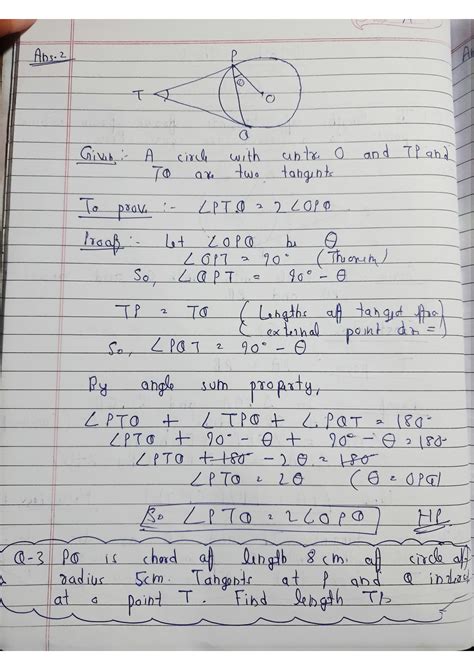 Ans. 2
P
T
θ
O
Q
Given :- A circle with centre O and TP and
TQ are two tangents
To prove :- ∠PTQ = 2∠OPQ
Proof :- Let ∠OPQ be θ
∠OPT = 90° (Theorem)
So, ∠QPT = 90° - θ
TP = TQ (Lengths of tangent from
external point are =)
So, ∠PQT = 90° - θ
By angle sum property,
∠PTQ + ∠TPQ + ∠PQT = 180°
∠PTQ + 90° - θ + 90° - θ = 180°
∠PTQ + 180° - 2θ = 180°
∠PTQ = 2θ (θ = OPQ)
So ∠PTQ = 2∠OPQ HP
Q-3 PQ is chord of length 8 cm. of circle of
radius 5cm. Tangents at P and Q
at a point T. Find length TP.